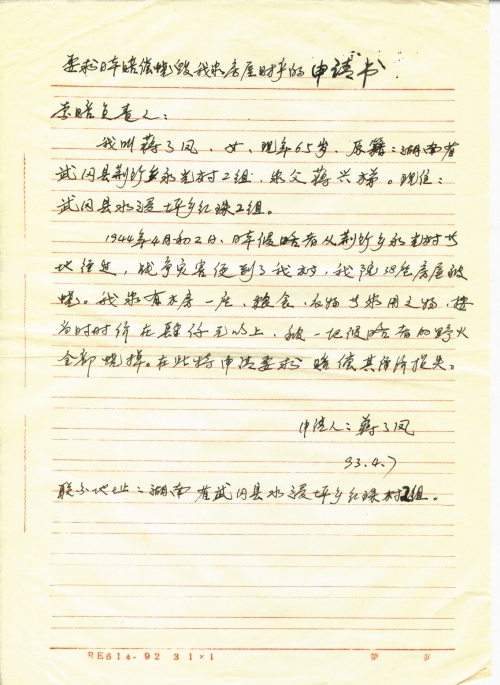 要求日本赔偿烧毁我家房屋财产的申请书
索赔负责人：
我叫蒋了凤，女，现年65岁，原籍：湖南省
武冈县荆竹乡永光村2组，家父蒋兴梯。现住：
武冈县水浸坪乡红珠2组。
1944年4月初2日，日本侵略者从荆竹乡永光村等
地经过，战争灾害便到了我村，我院38座房屋被
烧。我家有木房一座，粮食、衣物等家用之物，按
当时时价在肆仟元以上，被一把侵略者的野火
全部烧掉。在此特申请要求赔偿其经济损失。
申请人：蒋了凤
93.4.7
联系地址：湖南省武冈县水浸坪乡红珠村2组。
RE614-92 3 1×1
第 页